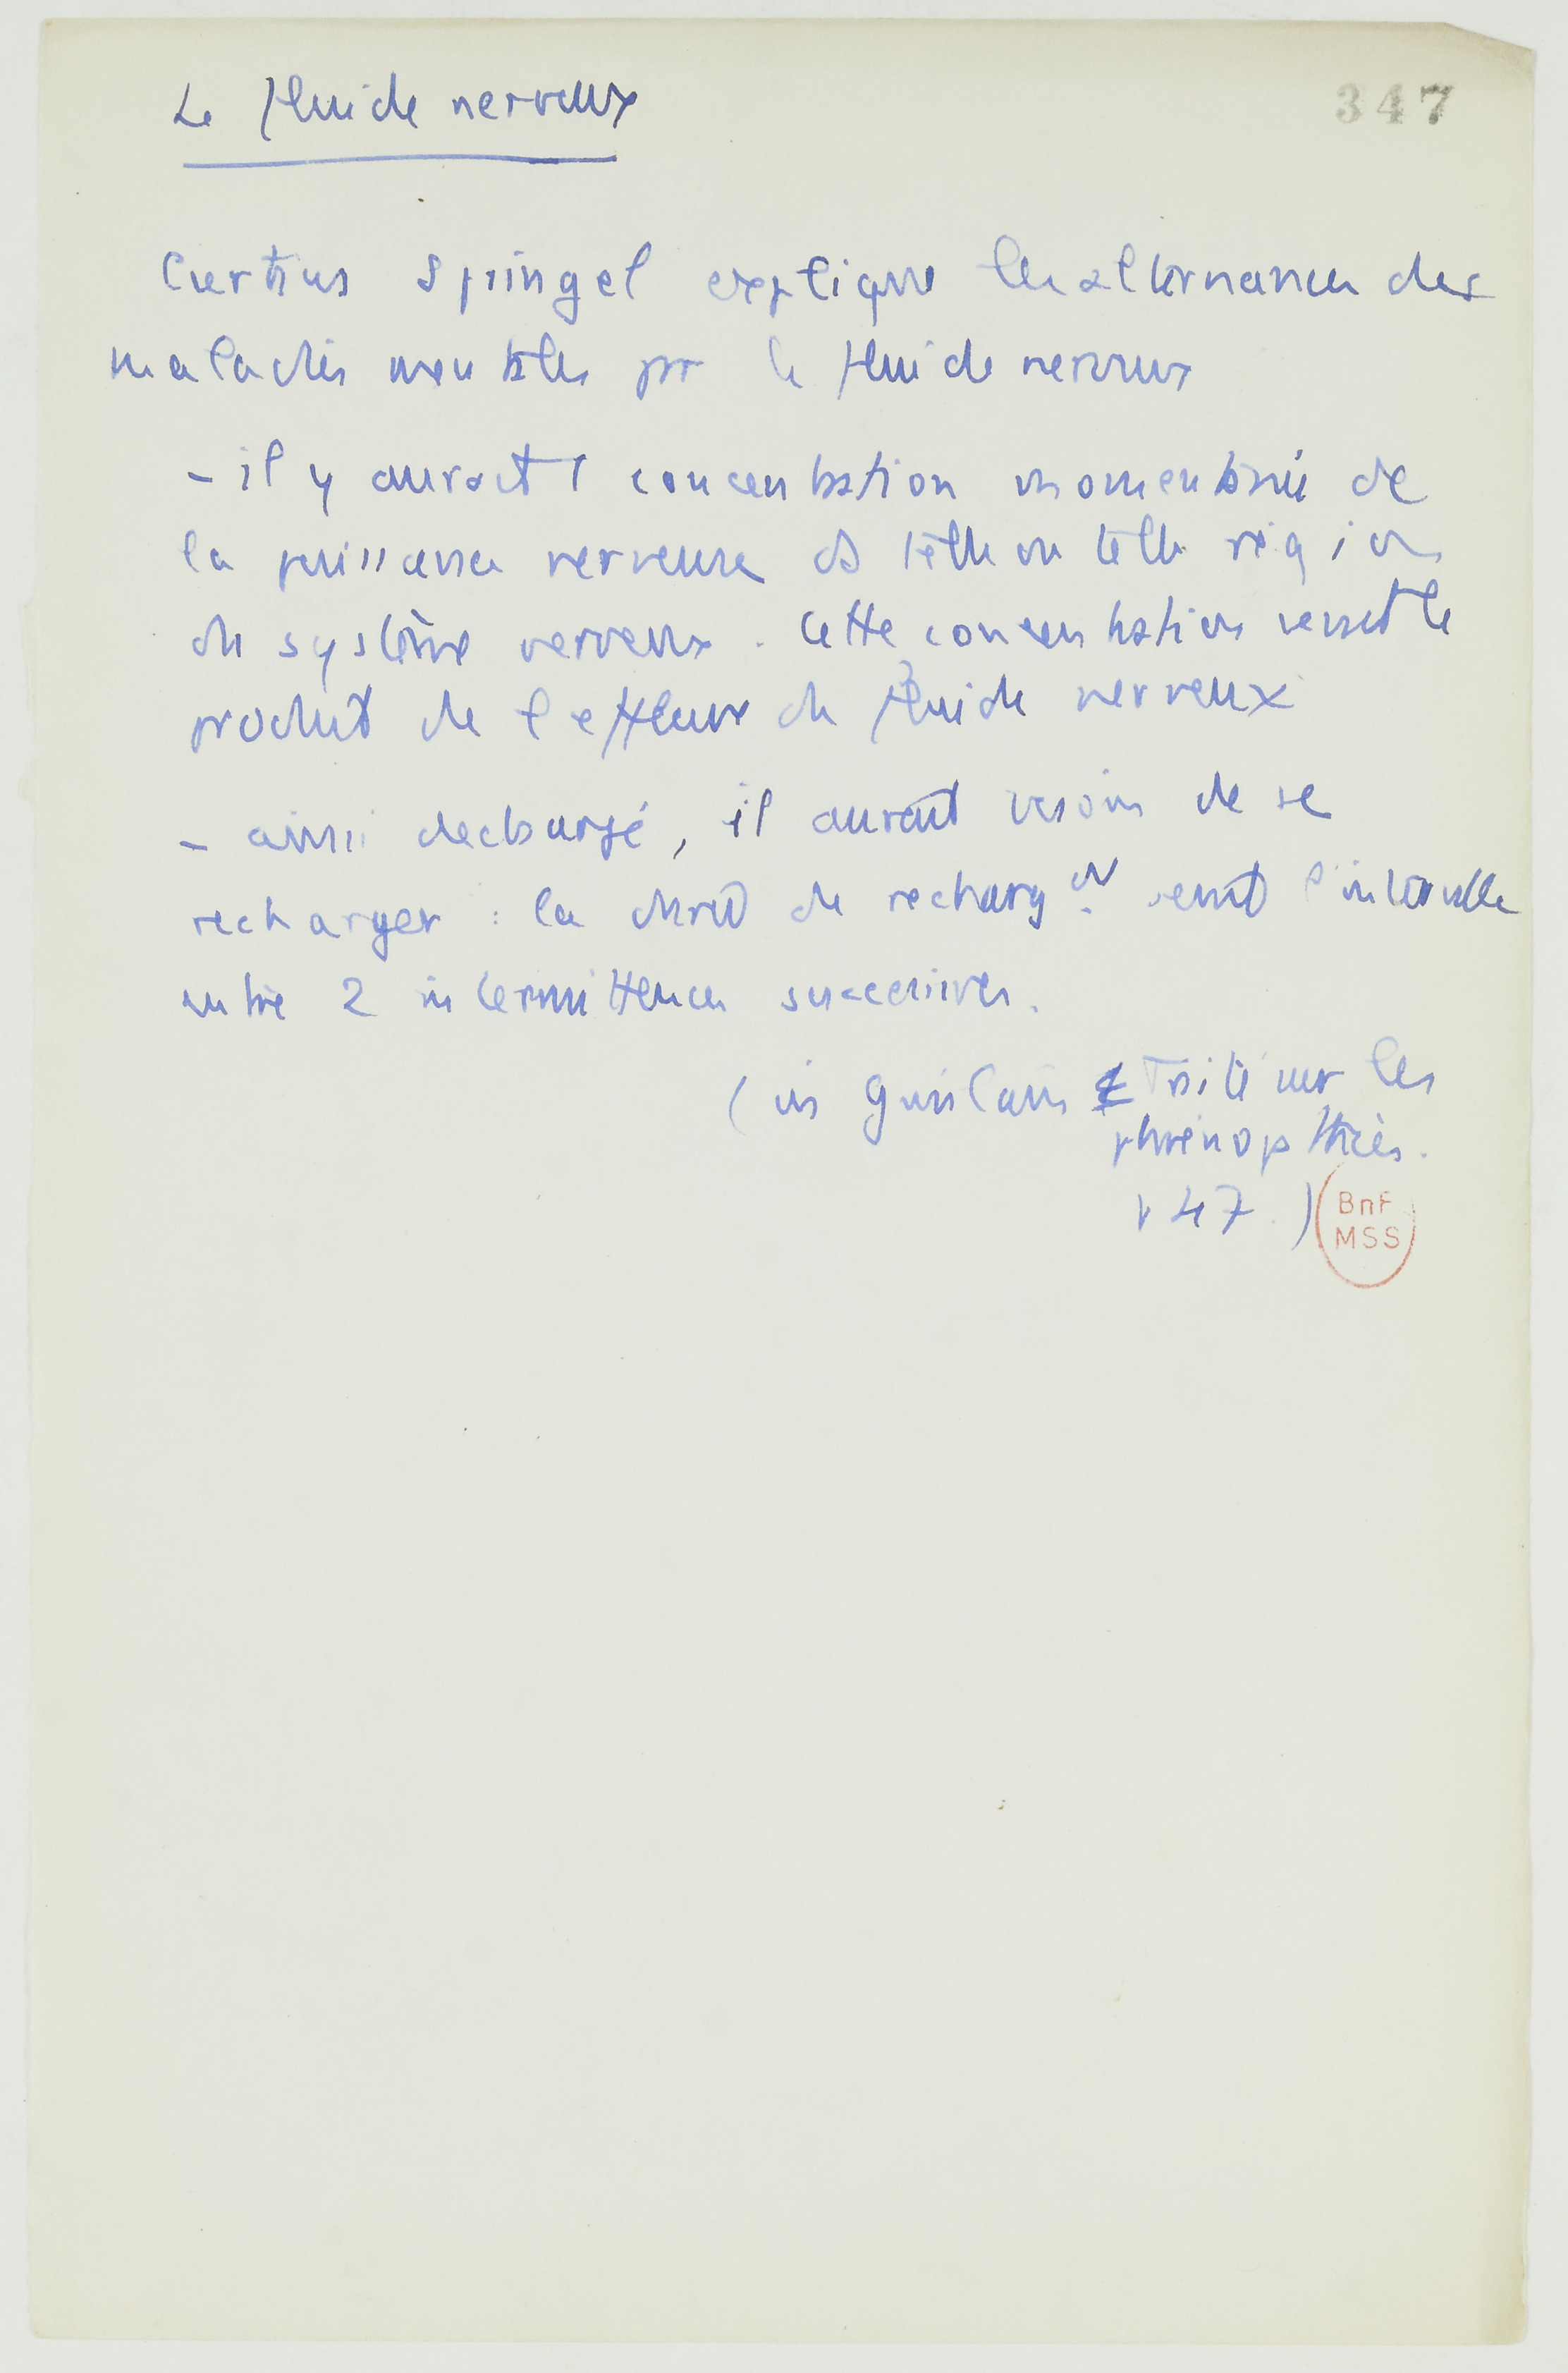 Le fluide nerveux
347
Curtius Springel explique les alternances des
maladies mentales par le fluide nerveux
- il y aurait 1 concentration momentanée de
la puissance nerveuse ds telle ou telle région
du système nerveux. Cette concentration serait le
produit de l'afflux du fluide nerveux
- ainsi dechargé, il aurait besoin de se
recharger : la durée de recharg^t serait l'intervalle
entre 2 intermittences successives.
(in Guislain Traité sur les
phrénopathies.
p 47.)
BnF
MSS